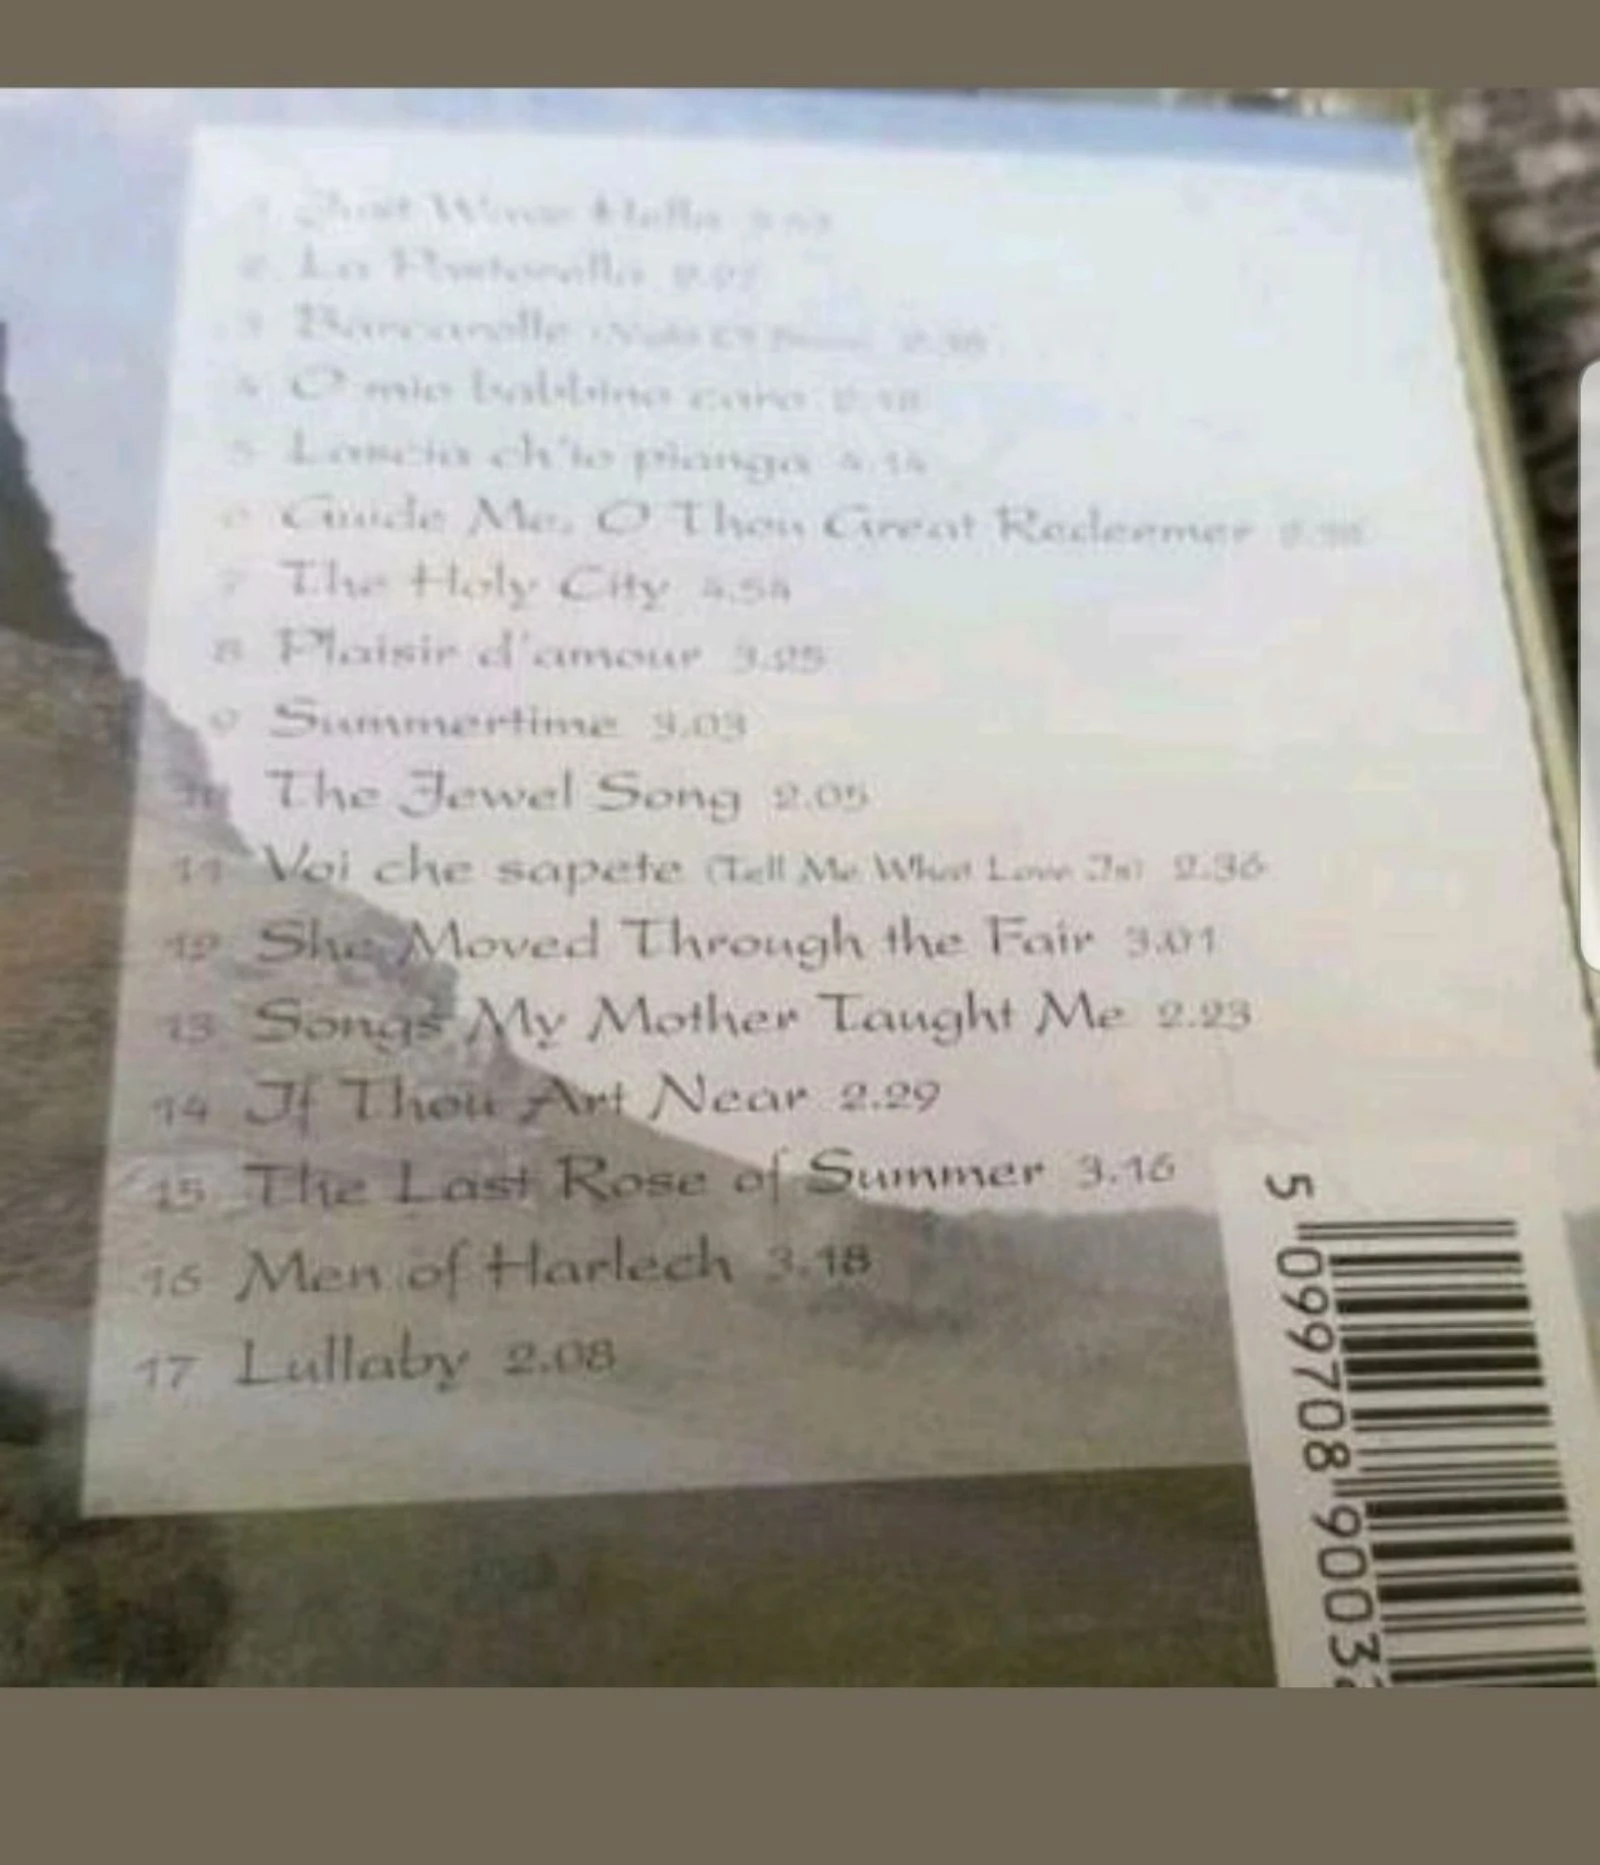 Just Wave Hello
2 La Pastorella 2.27
3 Barcarolle 2.38
4 O mio babbino caro 2.18
5 Lascia ch'io pianga 4.14
6 Guide Me, O Thou Great Redeemer
7 The Holy City 4.54
8 Plaisir d'amour 3.25
9 Summertime 3.03
10 The Jewel Song 2.05
11 Voi che sapete (Tell Me What Love Is) 2.36
12 She Moved Through the Fair 3.01
13 Songs My Mother Taught Me 2.23
14 If Thou Art Near 2.29
15 The Last Rose of Summer 3.16
16 Men of Harlech 3.18
17 Lullaby 2.08
5 099708 9003